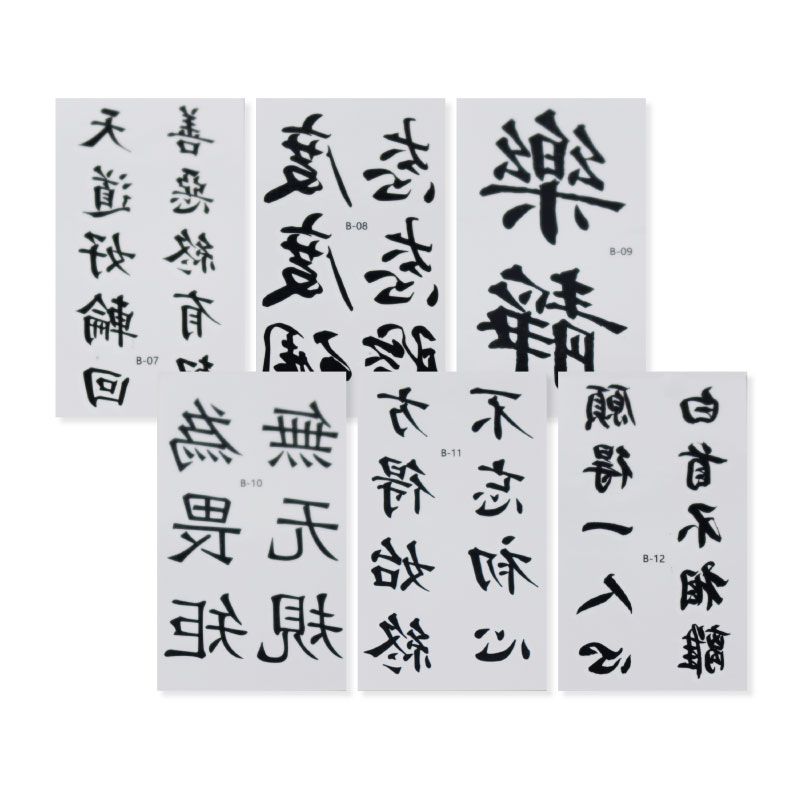 善惡終有
天道好輪回
B-07
态度
态度
B-08
樂
靜
B-09
無為
无畏
規矩
B-10
不忘初心
方得始終
B-11
願得一人心
白首不相離
B-12